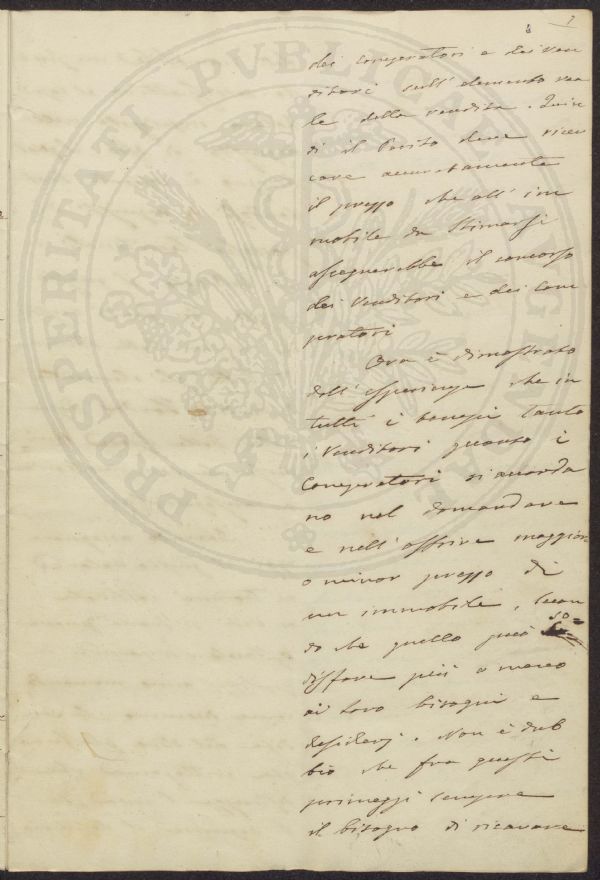 7
dei Compratori e dei Ven
ditori sull' elemento rea
le della vendita. Quin
di il Perito deve ricer
care accuratamente
il prezzo che all' im
mobile da Stimarsi
assegnerebbe il concorso
dei Venditori e dei Com
pratori
Ora è dimostrato
dall' esperienza che in
tutti i tempi tanto
i Venditori quanto i
Compratori si accorda
no nel domandare
e nell' offrire maggior
o minor prezzo di
un immobile, secon
do che quello può so=
disfare più o meno
ai loro bisogni e
desiderj. Non è dub
bio che fra questi
primeggi sempre
il bisogno di ricavare
PROSPERITATI PUBLICAE AUGENDAE